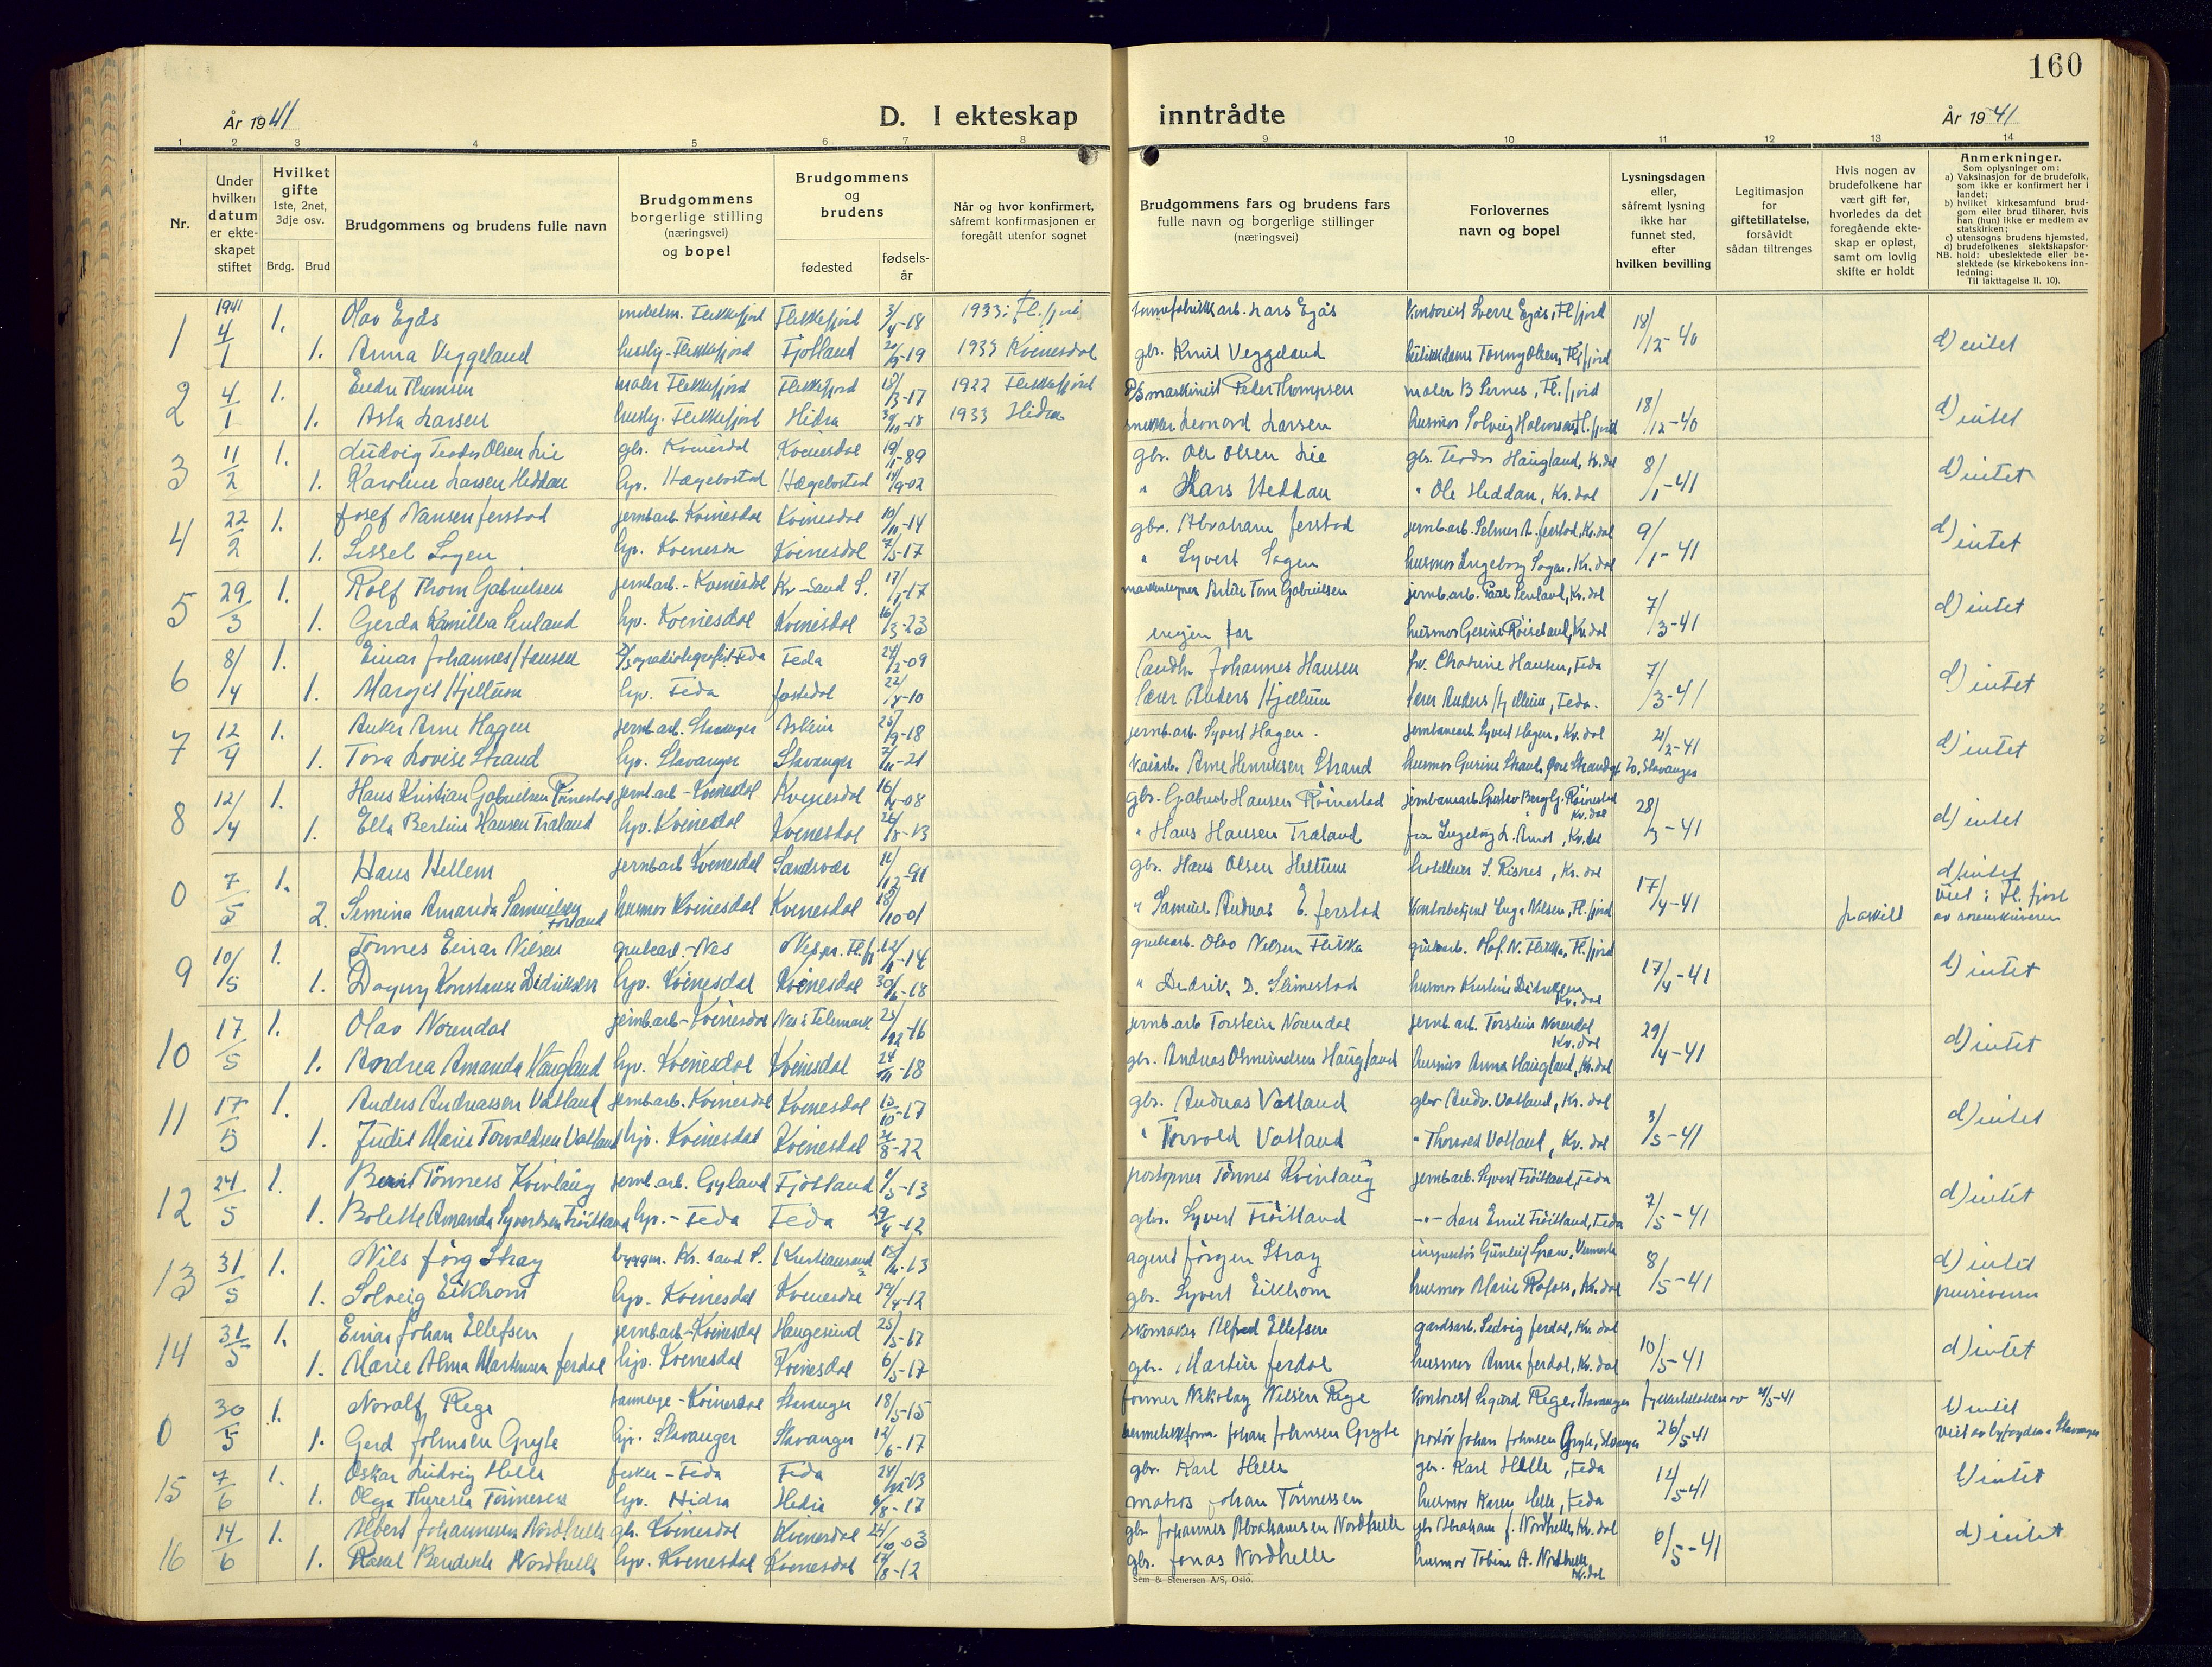 160
År 1941
D. I ekteskap inntrådte
År 1941
1 2 3 4 5 6 7 8 9 10 11 12 13 14
Nr.
Under hvilken datum er ekteskapet stiftet
Hvilket gifte 1ste, 2net, 3dje osv.
Brdg. Brud
Brudgommens og brudens fulle navn
Brudgommens borgerlige stilling (næringsvei) og bopel
Brudgommens og brudens
fødested
fødselsår
Når og hvor konfirmert, såfremt konfirmasjonen er foregått utenfor sognet
Brudgommens fars og brudens fars fulle navn og borgerlige stillinger (næringsvei)
Forlovernes navn og bopel
Lysningsdagen eller, såfremt lysning ikke har funnet sted, efter hvilken bevilling
Legitimasjon for giftetillatelse, forsåvidt sådan tiltrenges
Hvis nogen av brudefolkene har vært gift før, hvorledes da det foregående ekteskap er opløst, samt om lovlig skifte er holdt
Anmerkninger.
Som oplysninger om:
a) Vaksinasjon for de brudefolk, som ikke er konfirmert her i landet;
b) hvilket kirkesamfund brudgom eller brud tilhører, hvis han (hun) ikke er medlem av statskirken;
c) utensogns brudens hjemsted,
d) brudefolkenes slektskapsforhold: ubeslektede eller beslektede (se kirkebokens innledning;
NB.
Til Iakttagelse II. 10).
1 1941 4/1 1. Olav Egås Flekkefjord Flekkefjord 3/4-18 1933 i Fl.fjord Lars Egås Sverre Egås, Fl.fjord 18/12-40 d) intet
1. Anna Veggeland Flekkefjord Fjotland 1933 Kvinesdal gbr. Knut Veggeland Tonny Olsen, Fl.fjord
2 4/1 1. Endre Thomsen maler Flekkefjord Flekkefjord 18/3-17 1922 Flekkefjord Peder Thompsen maler B. Sernes, Fl.fjord 18/12-40 d) intet
1. Asta Larsen Flekkefjord Hidra 1933 Hidra Leonard Larsen husmor Solveig Fl.fjord
3 11/2 1. Ludvig Teodor Olsen Lie gbr. Kvinesdal Kvinesdal 19/11-89 gbr. Ole Olsen Lie gbr. Teodor Haugland, Kv.dal 8/1-41 d) intet
1. Karoline Larsen Heddan hp. Hægebostad Hægebostad 14/9-02 " Lars Heddan " Ole Heddan, Kv.dal
4 22/2 1. Josef Nansen Jerstad jernb.arb. Kvinesdal Kvinesdal 10/11-14 gbr. Abraham Jerstad jernb.arb. Selmer A. Jerstad, Kv.dal 9/1-41 d) intet
1. Sissel Sagen hp. Kvinesda Kvinesdal 7/5-17 " Syvert Sagen husmor Ingeborg Sagen, Kv.dal
5 29/3 1. Rolf Thom Gabrielsen jernb.arb.- Kvinesdal Kr.-Sand S. Artur Tom Gabrielsen jernb.arb. Paal Senland, Kv.dal 7/3-41 d) intet
1. Gerda Kamilla Senland hp. Kvinesdal Kvinesdal 16/3-23 ingen far husmor Gesine Røiseland, Kv.dal
6 8/4 1. Einar Johannes Hansen Feda Feda 24/2-09 Johannes Hansen fru Cathrine Hansen, Feda 7/3-41 d) intet
1. Margit Hjellum hp. Feda Jostedal 22/4-10 lærer Anders Hjellum lærer Anders Hjellum, Feda.
7 12/4 1. Anker Arne Hagen jernb.arb. Stavanger Askim 25/9-18 jernb.arb. Syvert Hagen. jernbanearb. Syvert Hagen, Kv.dal 21/2-41 d) intet
1. Tora Lovise Strand hp. Stavanger Stavanger 7/11-21 Arne Henriksen Strand husmor Gurine Strand, Øvre Strandgt 20, Stavanger
8 12/4 1. Hans Kristian Gabrielsen Röinestad jernb.arb - Kvinesdal Kvinesdal 16/4-08 gbr. Gabriel Hansen Röinestad jernbanearb. Gustav Berg G. Röinestad Kv.dal 28/3-41 d) intet
1. Ella Bertine Hansen Træland hp. Kvinesdal Kvinesdal 26/8-13 " Hans Hansen Træland Kv.dal
0 7/5 1. Hans Hellem jernb.arb Kvinesdal Sandsvær 11/12-91 gbr. Hans Olsen Hellum S. Risnes, Kv.dal 17/4-41 d) intet
2. Semina Amanda Samuelsen husmor Kvinesdal Kvinesdal 18/10-01 " Samuel Andreas E. Jerstad Kontorbetjent Inga Nilsen, Fl.fjord fraskilt viet i Fl.fjord av sorenskriveren
9 10/5 1. Tönnes Einar Nilsen grubearb.-Nes Nes pr. Fl.fj. grubearb. Olav Nilsen Flikka grubearb. Olaf N. Flikka, Fl.fjord 17/4-41 d) intet
1. Dagny Konstanse Didriksen hp. Kvinesdal Kvinesdal 30/6-18 " Didrik D. Slimestad husmor Kristine Didriksen Kv.dal
10 17/5 1. Olav Norendal jernb.arb-Kvinesdal Nes i Telemark 25/12-16 jernb.arb Torstein Norendal jernb.arb. Torstein Norendal Kv.dal 29/4-41 d) intet
1. Andrea Amanda Haugland hp. Kvinesdal Kvinesdal 24/11-18 gbr. Andreas Osmundsen Haugland husmor Anna Haugland, Kv.dal
11 17/5 1. Anders Andreassen Vatland jernb.arb. Kvinesdal Kvinesdal 15/10-17 gbr. Andreas Vatland gbr Andr. Vatland, Kv.dal 3/5-41 d) intet
1. Judit Marie Torvaldsen Vatland hp. Kvinesdal Kvinesdal 8-22 " Torvald Vatland " Thorvald Vatland, Kv.dal
12 24/5 1. Bernt Tönness Kvinlaug jernb.arb. Gyland Fjotland 5-13 Tönnes Kvinlaug jernb.arb. Syvert Tröitland, Feda 7/5-41 d) intet
1. Bolette Amanda Syvertsen Tröitland hp.- Feda Feda 29/4-12 gbr. Syvert Tröitland -"- Lars Emil Tröitland, Feda
13 31/5 1. Nils Jörg Stray Kr.sand S. Kristiansand S agent Jörgen Stray 8/5-41 d) intet
1. Solveig Eikhom hp. Kvinesdal Kvinesdal gbr. Syvert Eikhom husmor Marie Rafoss, Kv.dal
14 31/5 1. Einar Johan Ellefsen jernb.arb-Kvinesdal Haugesund 25/5-17 skomaker Alfred Ellefsen gardsarb. Sedvig Jerdal, Kv.dal 10/5-41 d) intet
1. Marie Alma Martinsen Jerdal hp. Kvinesdal Kvinesdal 6/5-17 gbr. Martin Jerdal husmor Anna Jerdal, Kv.dal
0 30/5 1. Noralf Rege Kvinesdal Stavanger 18/5-15 Nikolay Nilsen Rege Kontorist Sigurd Rege, Stavanger 21/5-41 d) intet
1. Gerd Johnsen Gryte hp. Stavanger Stavanger 12/6-17 Johan Johnsen Gryte Johan Johnsen Gryte, Stavanger 26/5-41 viet av byfogden i Stavanger
15 7/6 1. Oskar Ludvig Helle fisker - Feda Feda gbr. Karl Helle gbr. Karl Helle, Feda 14/5-41 d) intet
1. Olga Theresia Tönnesen hp. Hidra Hidra 8-17 matros Johan Tönnessen husmor Karen Helle, Feda
16 14/6 1. Albert Johannesen Nordhelle gbr. Kvinesdal Kvinesdal 24/10-03 gbr Johannes Abrahamsen Nordhelle gbr Abraham J. Nordhelle, Kv.dal 5-41 d) intet
1. Rakel Bendikte Nordhelle hp. Kvinesdal Kvinesdal 8-12 gbr. Jonas Nordhelle husmor Tobine A. Nordhelle Kv.dal
Sem & Stenersen A/S, Oslo.